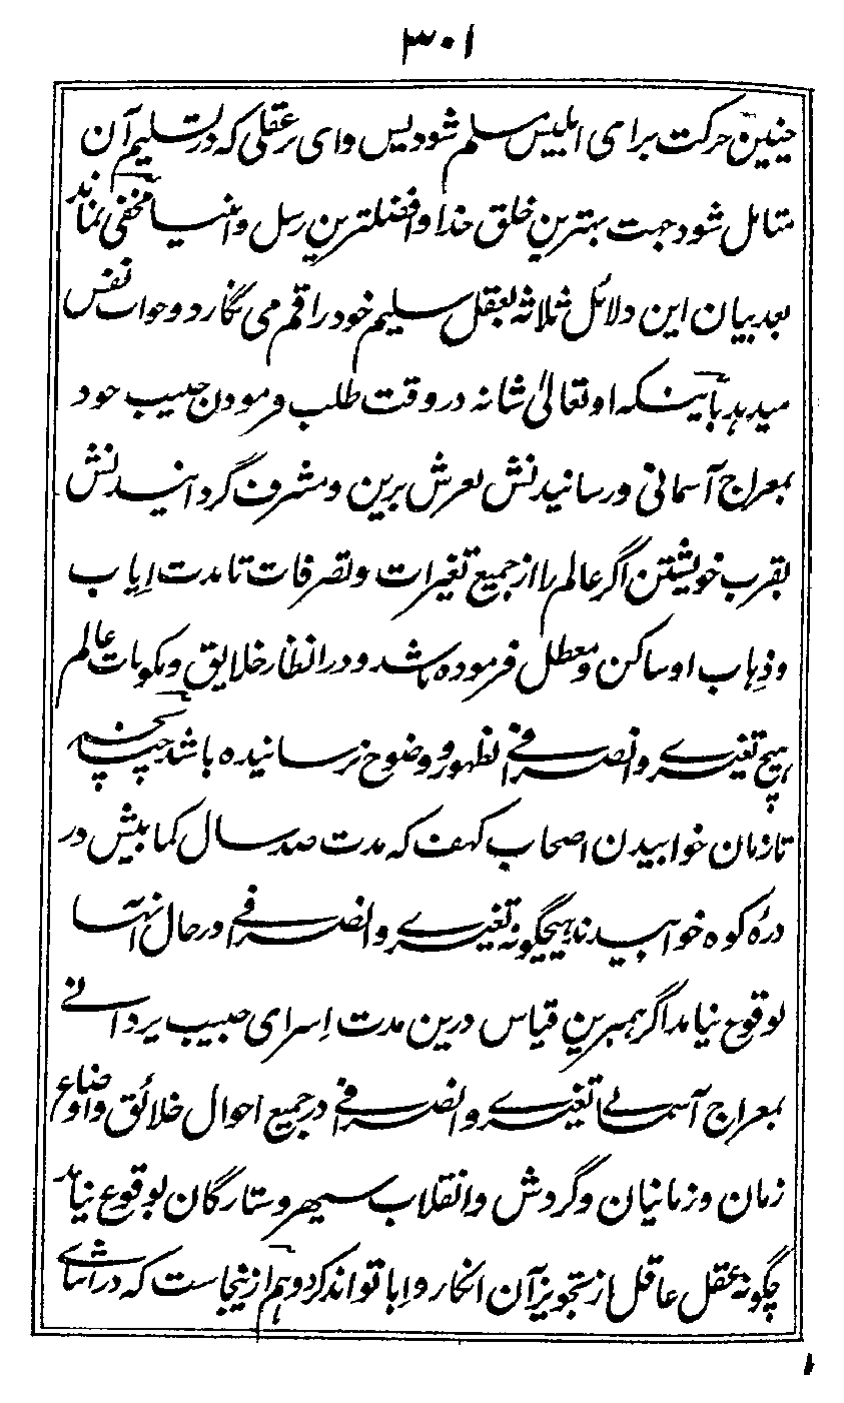 ۳۰۱
چنین حرکت برای ابلیس مسلم شود پس وای بر عقلی که در تسلیم آن
متامل شود جهت بهترین خلق خدا و افضلترین رسل و انبیا مخفی نماند
بعد بیان این دلائل ثلاثه بعقل سلیم خود راقم می نگارد و جواب نفس
میدهد باینکه او تعالیٰ شانه در وقت طلب فرمودن حبیب خود
بمعراج آسمانی و رسانیدنش بعرش برین و مشرف گردانیدنش
بقرب خویشتن اگر عالم را از جمیع تغیرات و تصرفات تا مدت اِیاب
و ذِهاب او ساکن و معطل فرموده باشد و در انظار خلایق و مکونات عالم
هیچ تغیرے و انصرافے بظهور و وضوح نرسانیده باشد چنانچه
تا زمان خوابیدن اصحاب کهف که مدت صد سال کما بیش در
درهٔ کوه خوابیدند هیچگونه تغیرے و انصرافے در حال آنها
بوقوع نیامد اگر همبرین قیاس درین مدت اِسرای حبیب یزدانے
بمعراج آسمانے تغیرے و انصرافے در جمیع احوال خلائق و اوضاع
زمان و زمانیان و گردش و انقلاب سپهر و ستارگان بوقوع نیاید
چگونه عقل عاقل از تجویز آن انکار و اِبا تواند کرد و هم ازینجاست که در اثنای